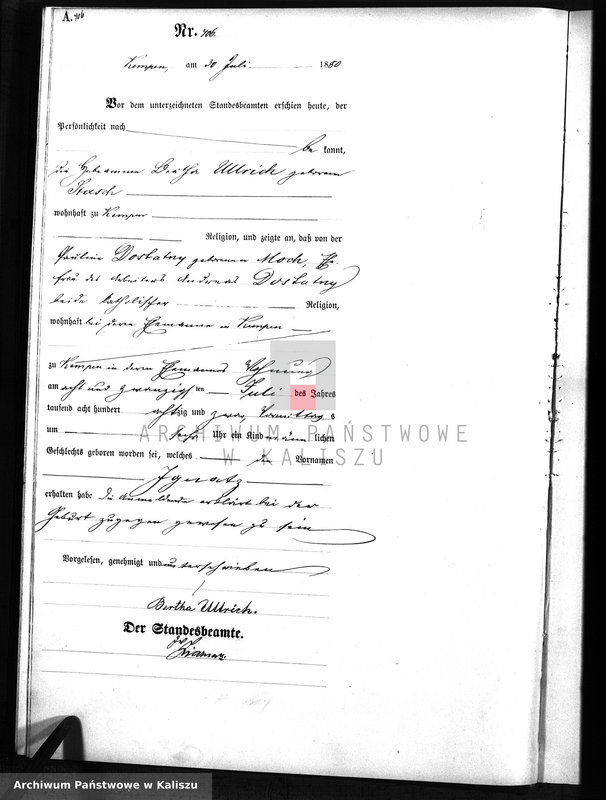 A. 706
Nr. 706.
Kempen, am 30 Juli 1880
Vor dem unterzeichneten Standesbeamten erschien heute, der
Persönlichkeit nach
be kannt,
die Hebeamme Bertha Ullrich geborene
wohnhaft zu Kempen
Religion, und zeigte an, daß von der
Pauline Dostatny geborenen Moch, Ehe-
frau des Arbeiters Andreas Dostatny
beide katholischer Religion,
wohnhaft bei ihrem Ehemanne in Kempen
zu Kempen in deren Ehemannes Wohnung
am acht und zwanzigsten Juli des Jahres
tausend acht hundert achtzig und zwar Vormittags
um sechs Uhr ein Kind männlichen
Geschlechts geboren worden sei, welches den Vornamen
Ignatz
erhalten habe Die Anmeldende erklärt bei der
Geburt zugegen gewesen zu sein
Vorgelesen, genehmigt und unterschrieben
Bertha Ullrich.
Der Standesbeamte.
ARCHIWUM PAŃSTWOWE
W KALISZU
Archiwum Państwowe w Kaliszu